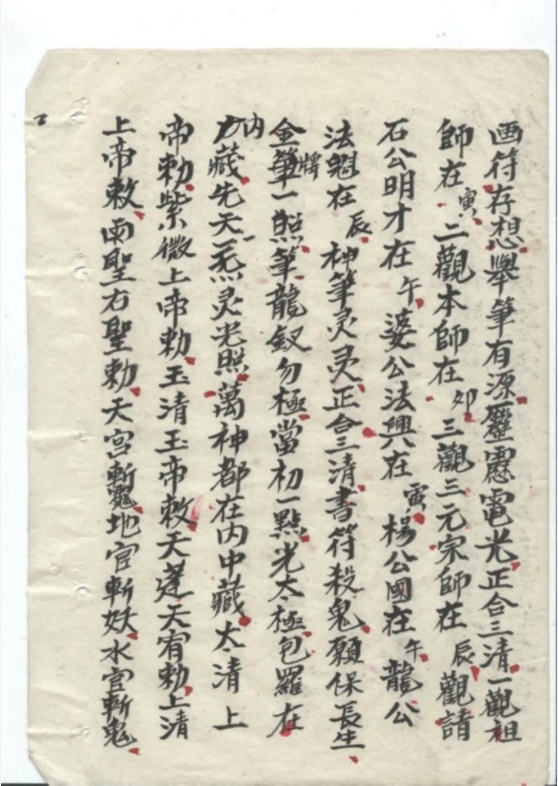 画符存想舉筆有源靂靂電光正合三清一觀祖
師在寅二觀本師在卯三觀三元宗師在辰觀請
石公明才在午婆公法興在寅楊公國在午龍公
法魁在辰神筆灵灵正合三清書符殺鬼願保長生
金筆一照筆龍釵勿極當初一點光太極包羅在
内藏先天一炁灵光照萬神都在内中藏太清上
帝勅紫微上帝勅玉清玉帝敕天蓬天宥勅上清
上帝敕南聖右聖勅天宫斬地官斬妖水官斬鬼